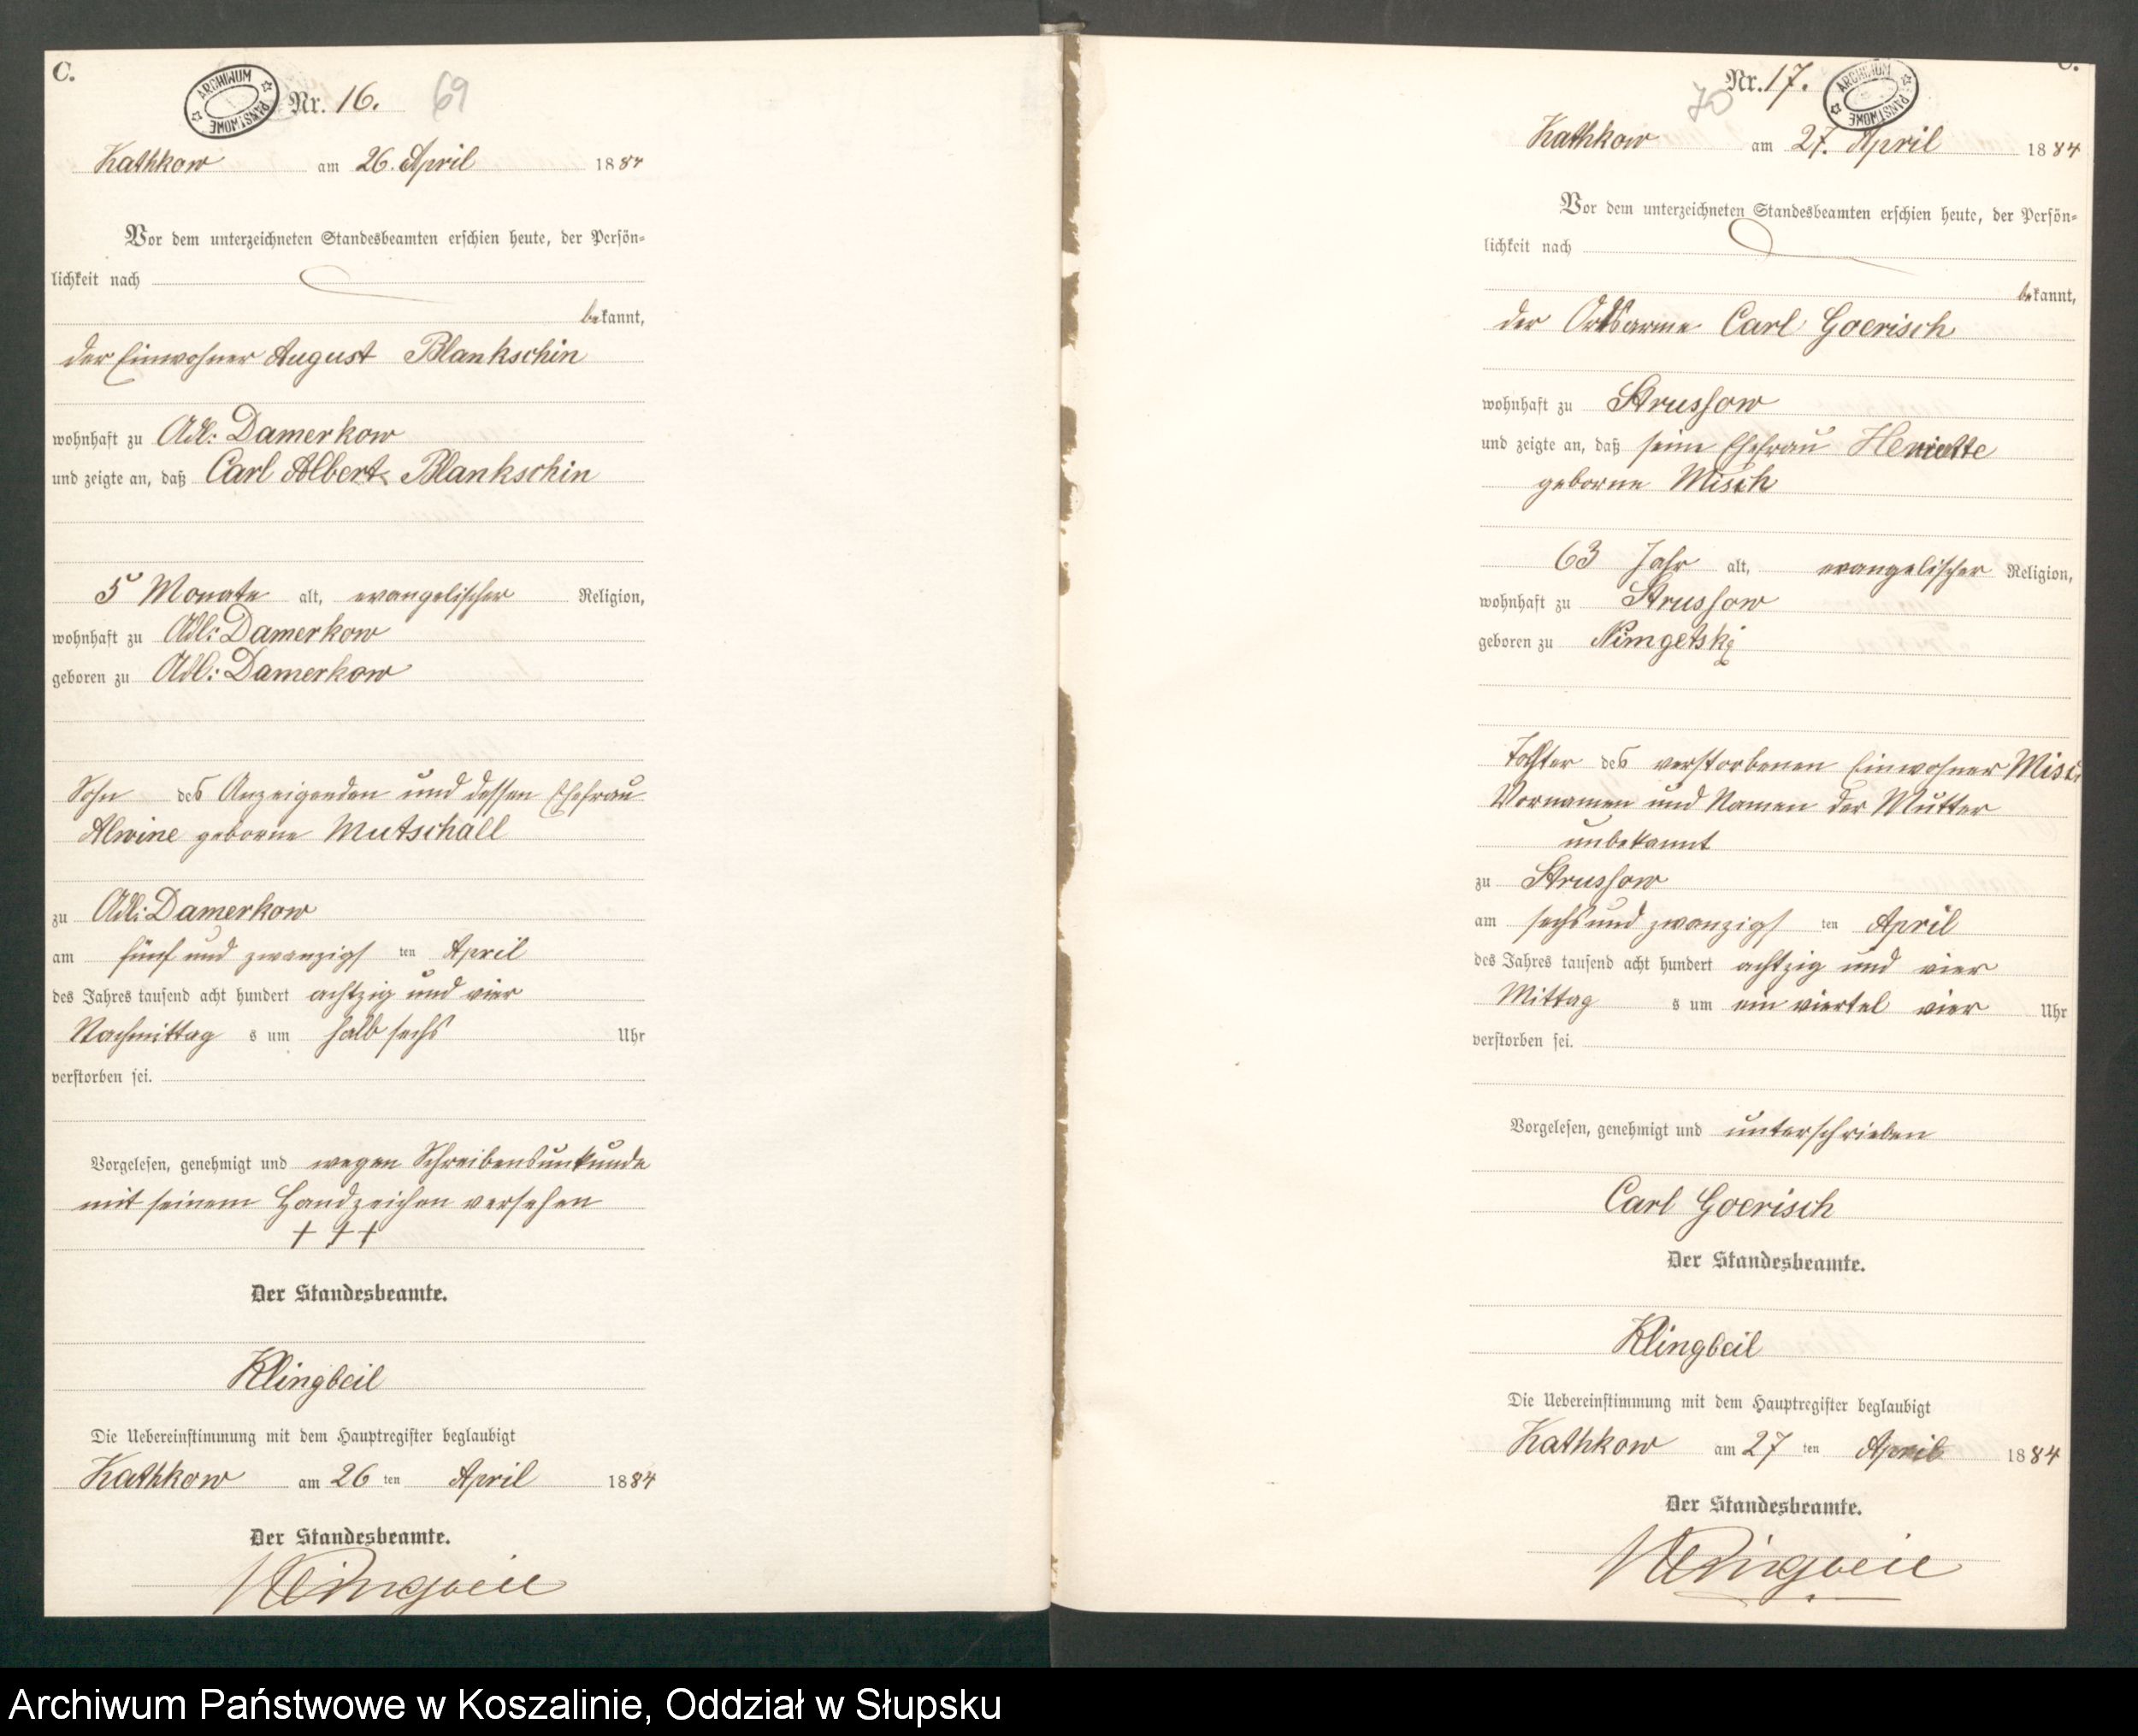 C.
ARCHIWUM PAŃSTWOWE
Nr. 16. 69
Kathkow am 26. April 1884
Vor dem unterzeichneten Standesbeamten erschien heute, der Persön=
lichkeit nach
bekannt,
der Einwohner August Blankschin
wohnhaft zu Adl: Damerkow
und zeigte an, daß Carl Albert Blankschin
5 Monate alt, evangelischer Religion,
wohnhaft zu Adl: Damerkow
geboren zu Adl: Damerkow
Sohn des Anzeigenden und dessen Ehefrau
Alwine geborne Mutschall
zu Adl: Damerkow
am fünf und zwanzigsten April
des Jahres tausend acht hundert achtzig und vier
Nachmittags um halb sechs Uhr
verstorben sei.
Vorgelesen, genehmigt und wegen Schreibensunkunde
mit seinem Handzeichen versehen
+ + +
Der Standesbeamte.
Klingbeil
Die Uebereinstimmung mit dem Hauptregister beglaubigt
Kathkow am 26 ten April 1884
Der Standesbeamte.
Klingbeil
C.
Nr. 17. 70
ARCHIWUM PAŃSTWOWE
Kathkow am 27. April 1884
Vor dem unterzeichneten Standesbeamten erschien heute, der Persön=
lichkeit nach
bekannt,
der Ortsarme Carl Goerisch
wohnhaft zu Strussow
und zeigte an, daß seine Ehefrau Henriette
geborne Misch
63 Jahr alt, evangelischer Religion,
wohnhaft zu Strussow
geboren zu
Tochter des verstorbenen Einwohner Misch
Vornamen und Namen der Mutter
unbekannt
zu Strussow
am sechs und zwanzigsten April
des Jahres tausend acht hundert achtzig und vier
Mittags um ein viertel vier Uhr
verstorben sei.
Vorgelesen, genehmigt und unterschrieben
Carl Goerisch
Der Standesbeamte.
Klingbeil
Die Uebereinstimmung mit dem Hauptregister beglaubigt
Kathkow am 27 ten April 1884
Der Standesbeamte.
Klingbeil
Archiwum Państwowe w Koszalinie, Oddział w Słupsku